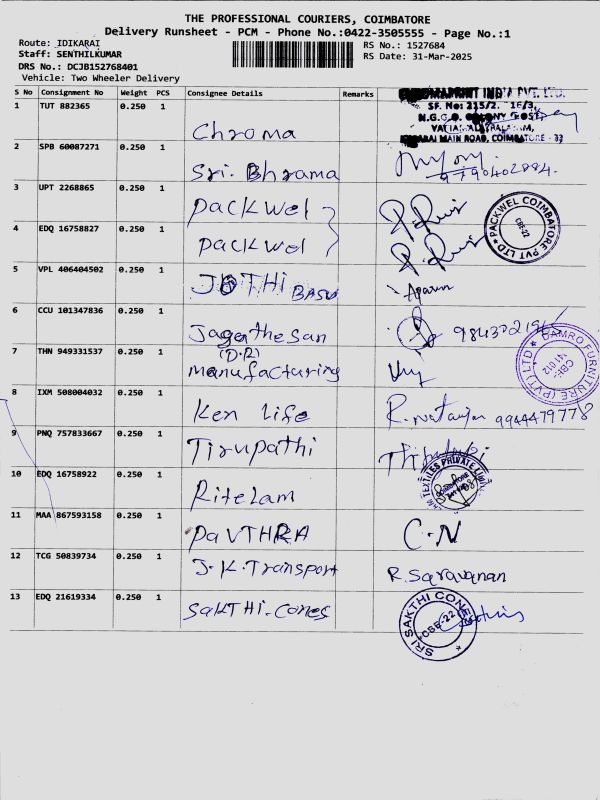 THE PROFESSIONAL COURIERS, COIMBATORE
Delivery Runsheet - PCM - Phone No.:0422-3505555 - Page No.:1
Route: IDIKARAI
RS No.: 1527684
Staff: SENTHILKUMAR
RS Date: 31-Mar-2025
DRS No.: DCJB152768401
Vehicle: Two Wheeler Delivery
S No Consignment No Weight PCS Consignee Details Remarks
1 TUT 882365 0.250 1 Chroma
INDIA PVT. LTD.
SF. No: 215/2.
N.G.G.O.
MAIN ROAD, COIMBATORE
2 SPB 60087271 0.250 1 Sri. Bhrama
9790402884.
3 UPT 2268865 0.250 1 Packwel
PACKWEL COIMBATORE PVT LTD
CBE-22
4 EDQ 16758827 0.250 1 Packwel
5 VPL 406404502 0.250 1 JOTHI BASU
6 CCU 101347836 0.250 1 Jagathesan
(D.R)
7 THN 949331537 0.250 1 Manufacturing
DAMRO FURNITURE (PVT) LTD
8 IXM 508004032 0.250 1 Ken Life
9944479778
9 PNQ 757833667 0.250 1 Tirupathi
10 EDQ 16758922 0.250 1 Ritelam
TEXTILES PRIVATE
11 MAA 867593158 0.250 1 PAVTHRA C.N
12 TCG 50839734 0.250 1 J.K.Transport R. Saravanan
13 EDQ 21619334 0.250 1 SAKTHI.Cones
SRI SAKTHI CONE
CBE-22